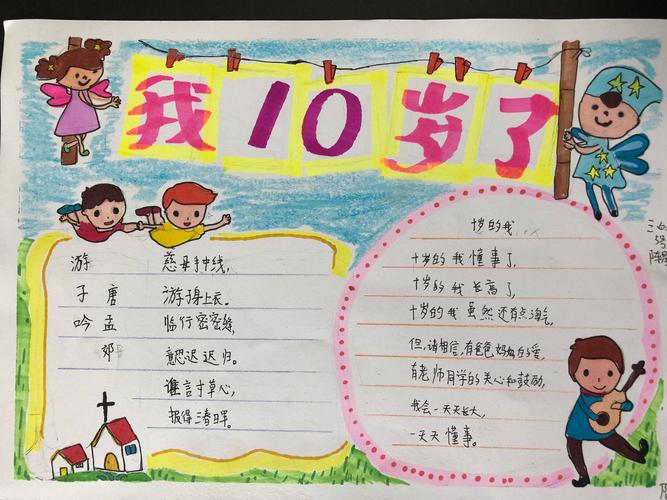 我10岁了
游子吟
唐 孟郊
慈母手中线,
游子身上衣。
临行密密缝,
意恐迟迟归。
谁言寸草心,
报得三春晖。
十岁的我
十岁的我懂事了,
十岁的我长高了,
十岁的我虽然还有点淘气,
但,请相信,有爸爸妈妈的爱,
有老师同学的关心和鼓励,
我会一天天长大,
一天天懂事。
5号